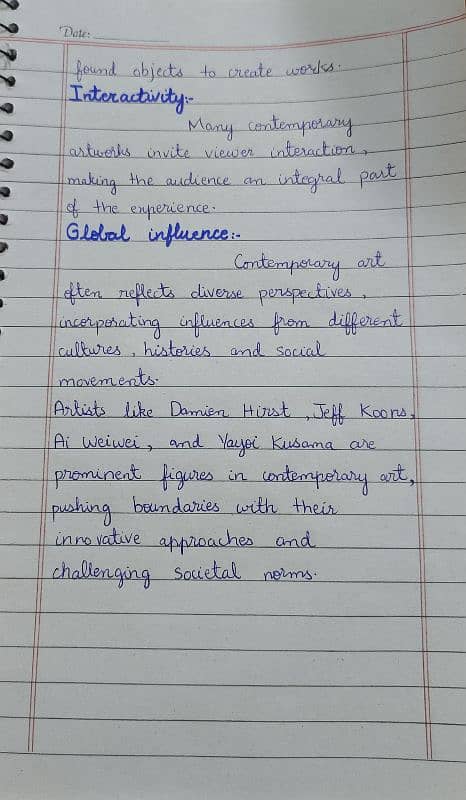 Date:
found objects to create works.
Interactivity:-
Many contemporary
artworks invite viewer interaction,
making the audience an integral part
of the experience.
Global influence:-
Contemporary art
often reflects diverse perspectives,
incorporating influences from different
cultures, histories and social
movements.
Artists like Damien Hirst, Jeff Koons,
Ai Weiwei, and Yayoi Kusama are
prominent figures in contemporary art,
pushing boundaries with their
innovative approaches and
challenging societal norms.